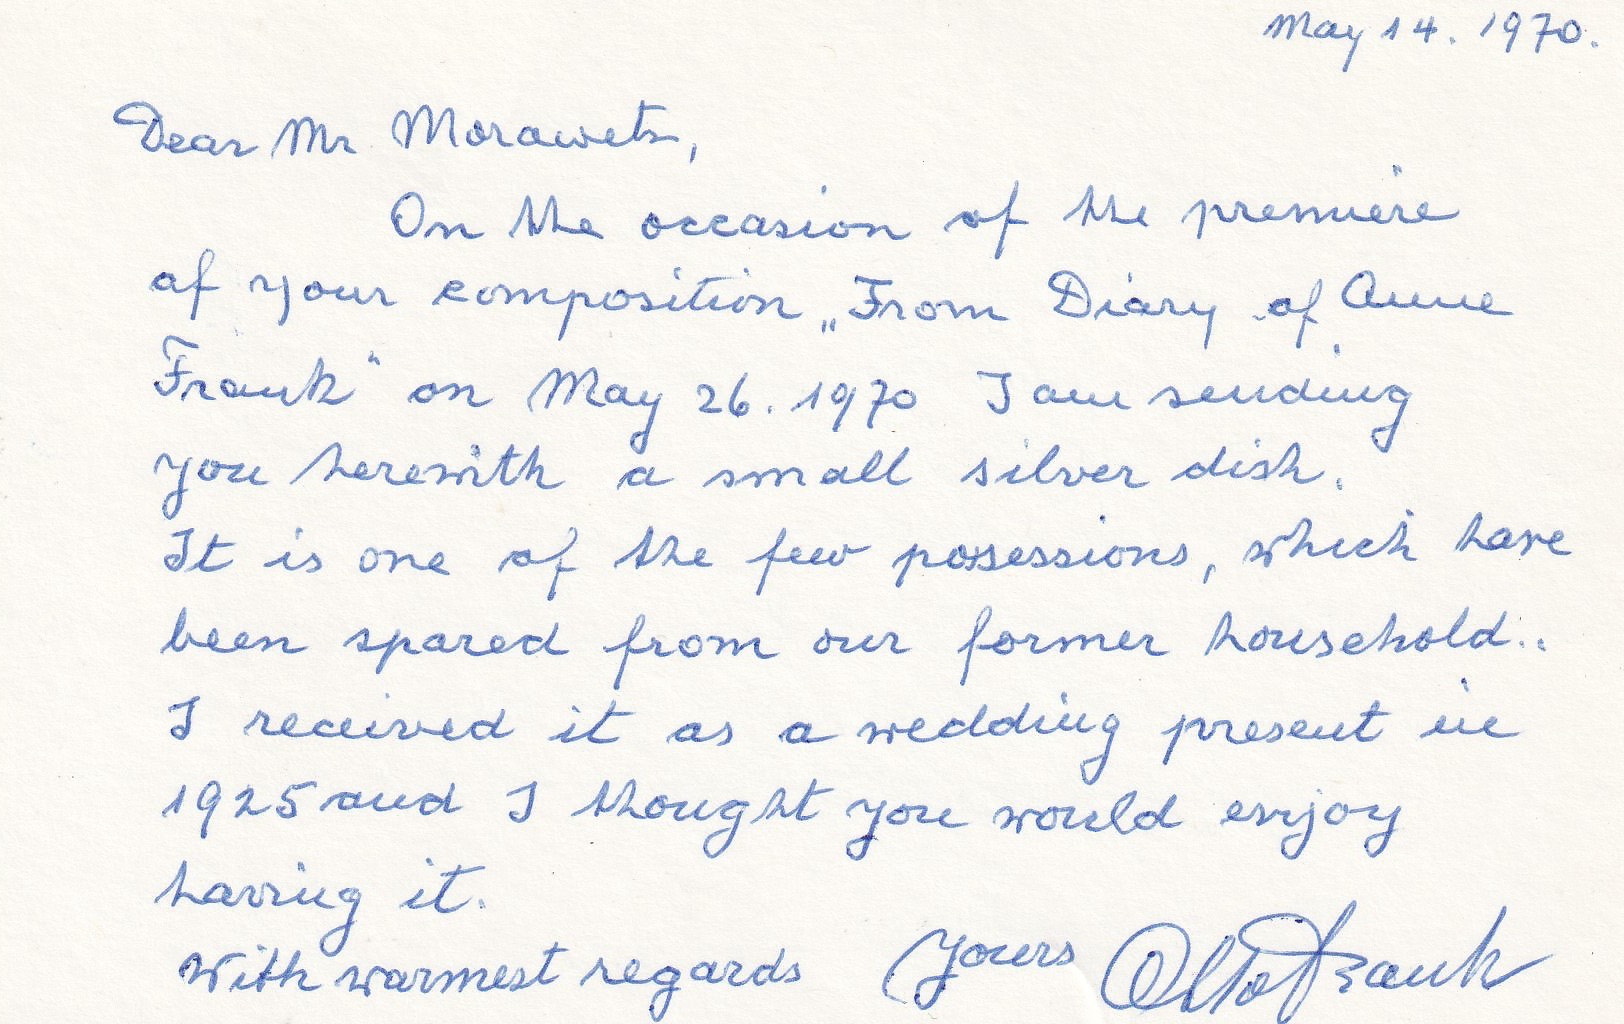 May 14. 1970.
Dear Mr Morawetz,
On the occasion of the premiere
of your composition „From Diary of Anne
Frank“ on May 26. 1970 I am sending
you herewith a small silver dish.
It is one of the few possessions, which have
been spared from our former household..
I received it as a wedding present in
1925 and I thought you would enjoy
having it.
With warmest regards Yours Otto Frank